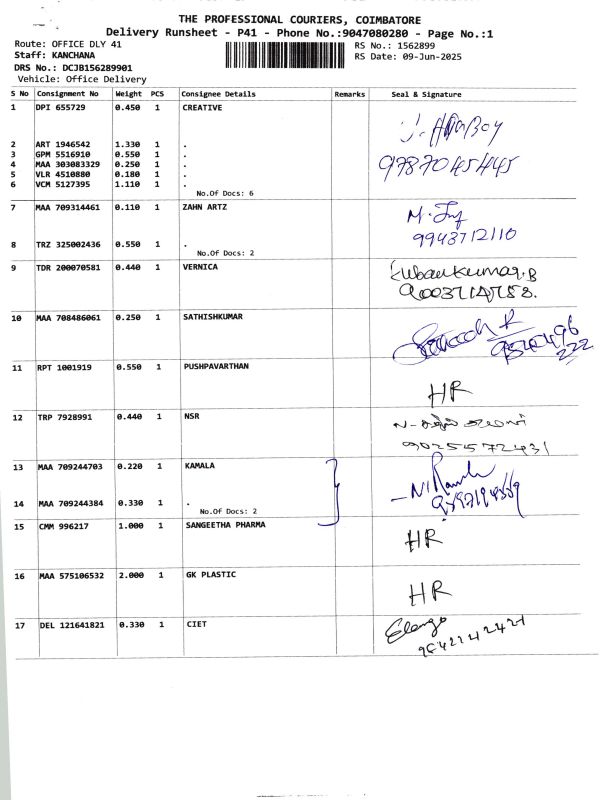 THE PROFESSIONAL COURIERS, COIMBATORE
Delivery Runsheet - P41 - Phone No.:9047080280 - Page No.:1
Route: OFFICE DLY 41 RS No.: 1562899
Staff: KANCHANA RS Date: 09-Jun-2025
DRS No.: DCJB156289901
Vehicle: Office Delivery
S No Consignment No Weight PCS Consignee Details Remarks Seal & Signature
1 DPI 655729 0.450 1 CREATIVE
2 ART 1946542 1.330 1 .
3 GPM 5516910 0.550 1 .
4 MAA 303083329 0.250 1 .
5 VLR 4510880 0.180 1 .
6 VCM 5127395 1.110 1 .
9787045445
No.Of Docs: 6
7 MAA 709314461 0.110 1 ZAHN ARTZ
9943712110
8 TRZ 325002436 0.550 1 .
No.Of Docs: 2
9 TDR 200070581 0.440 1 VERNICA
9003714758.
10 MAA 708486061 0.250 1 SATHISHKUMAR
222
11 RPT 1001919 0.550 1 PUSHPAVARTHAN
HR
12 TRP 7928991 0.440 1 NSR
9025572431
13 MAA 709244703 0.220 1 KAMALA
14 MAA 709244384 0.330 1 .
No.Of Docs: 2
15 CMM 996217 1.000 1 SANGEETHA PHARMA
HR
16 MAA 575106532 2.000 1 GK PLASTIC
HR
17 DEL 121641821 0.330 1 CIET
Elango